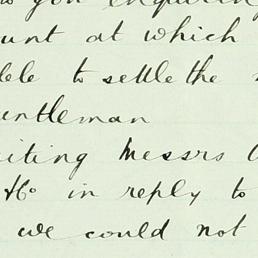 you enquiring
unt at which
ble to settle the
entleman
iting Messrs
& Co in reply to
we could not